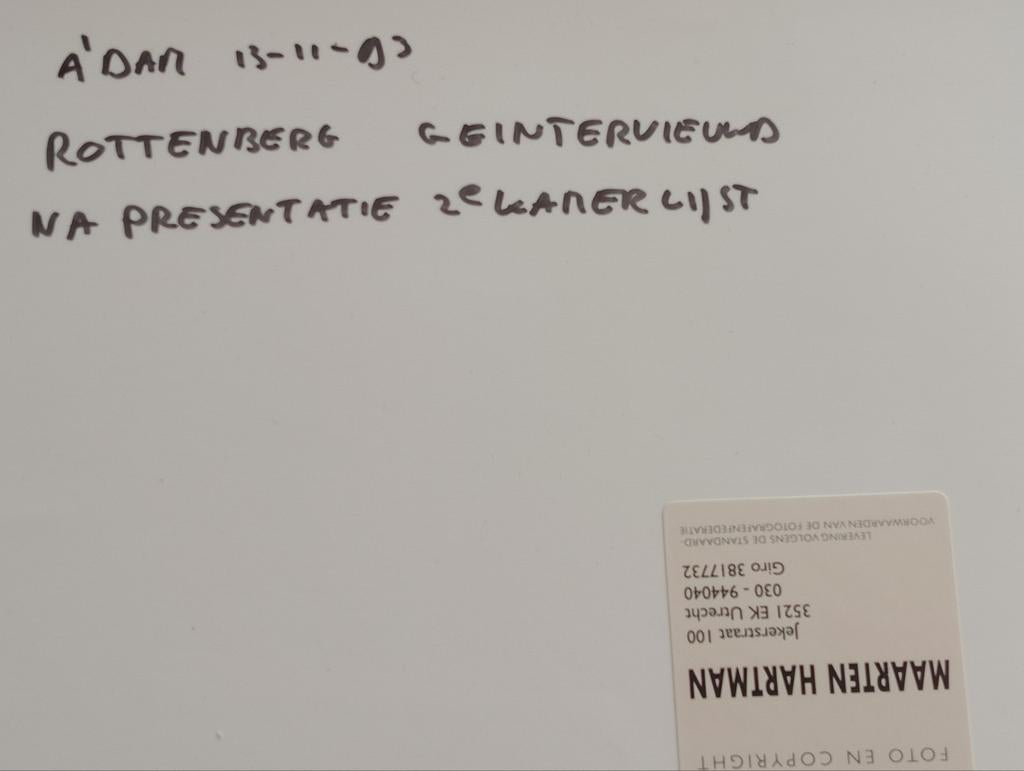 A'DAM 13-11-93
ROTTENBERG GEINTERVIEUWD
NA PRESENTATIE 2e KAMER LIJST
FOTO EN COPYRIGHT
MAARTEN HARTMAN
Jekerstraat 100
3521 EK Utrecht
030 - 944040
Giro 3817732
LEVERING VOLGENS DE STANDAARD-
VOORWAARDEN VAN DE FOTOGRAFENFEDERATIE